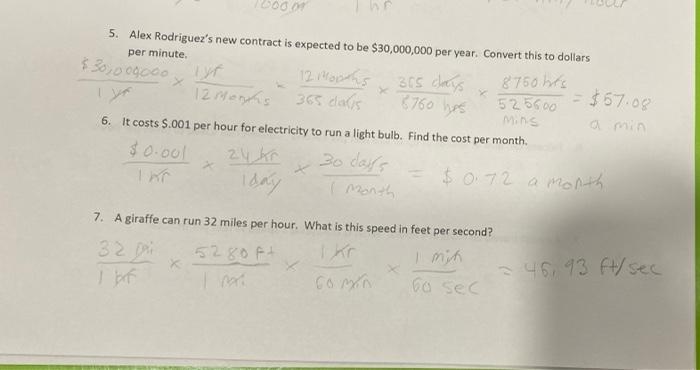 1000m 1 hr
5. Alex Rodriguez's new contract is expected to be $30,000,000 per year. Convert this to dollars
per minute.
$30,000,000 × 1 yr × 12 Months × 365 days × 8760 hrs = $57.08
1 yr 12 Months 365 days 8760 hrs 525600 mins a min
6. It costs $.001 per hour for electricity to run a light bulb. Find the cost per month.
$0.001 × 24 hr × 30 days = $0.72 a month
1 hr 1 day 1 month
7. A giraffe can run 32 miles per hour. What is this speed in feet per second?
32 mi × 5280 ft × 1 hr × 1 min = 46.93 ft/sec
1 hr 1 mi 60 min 60 sec